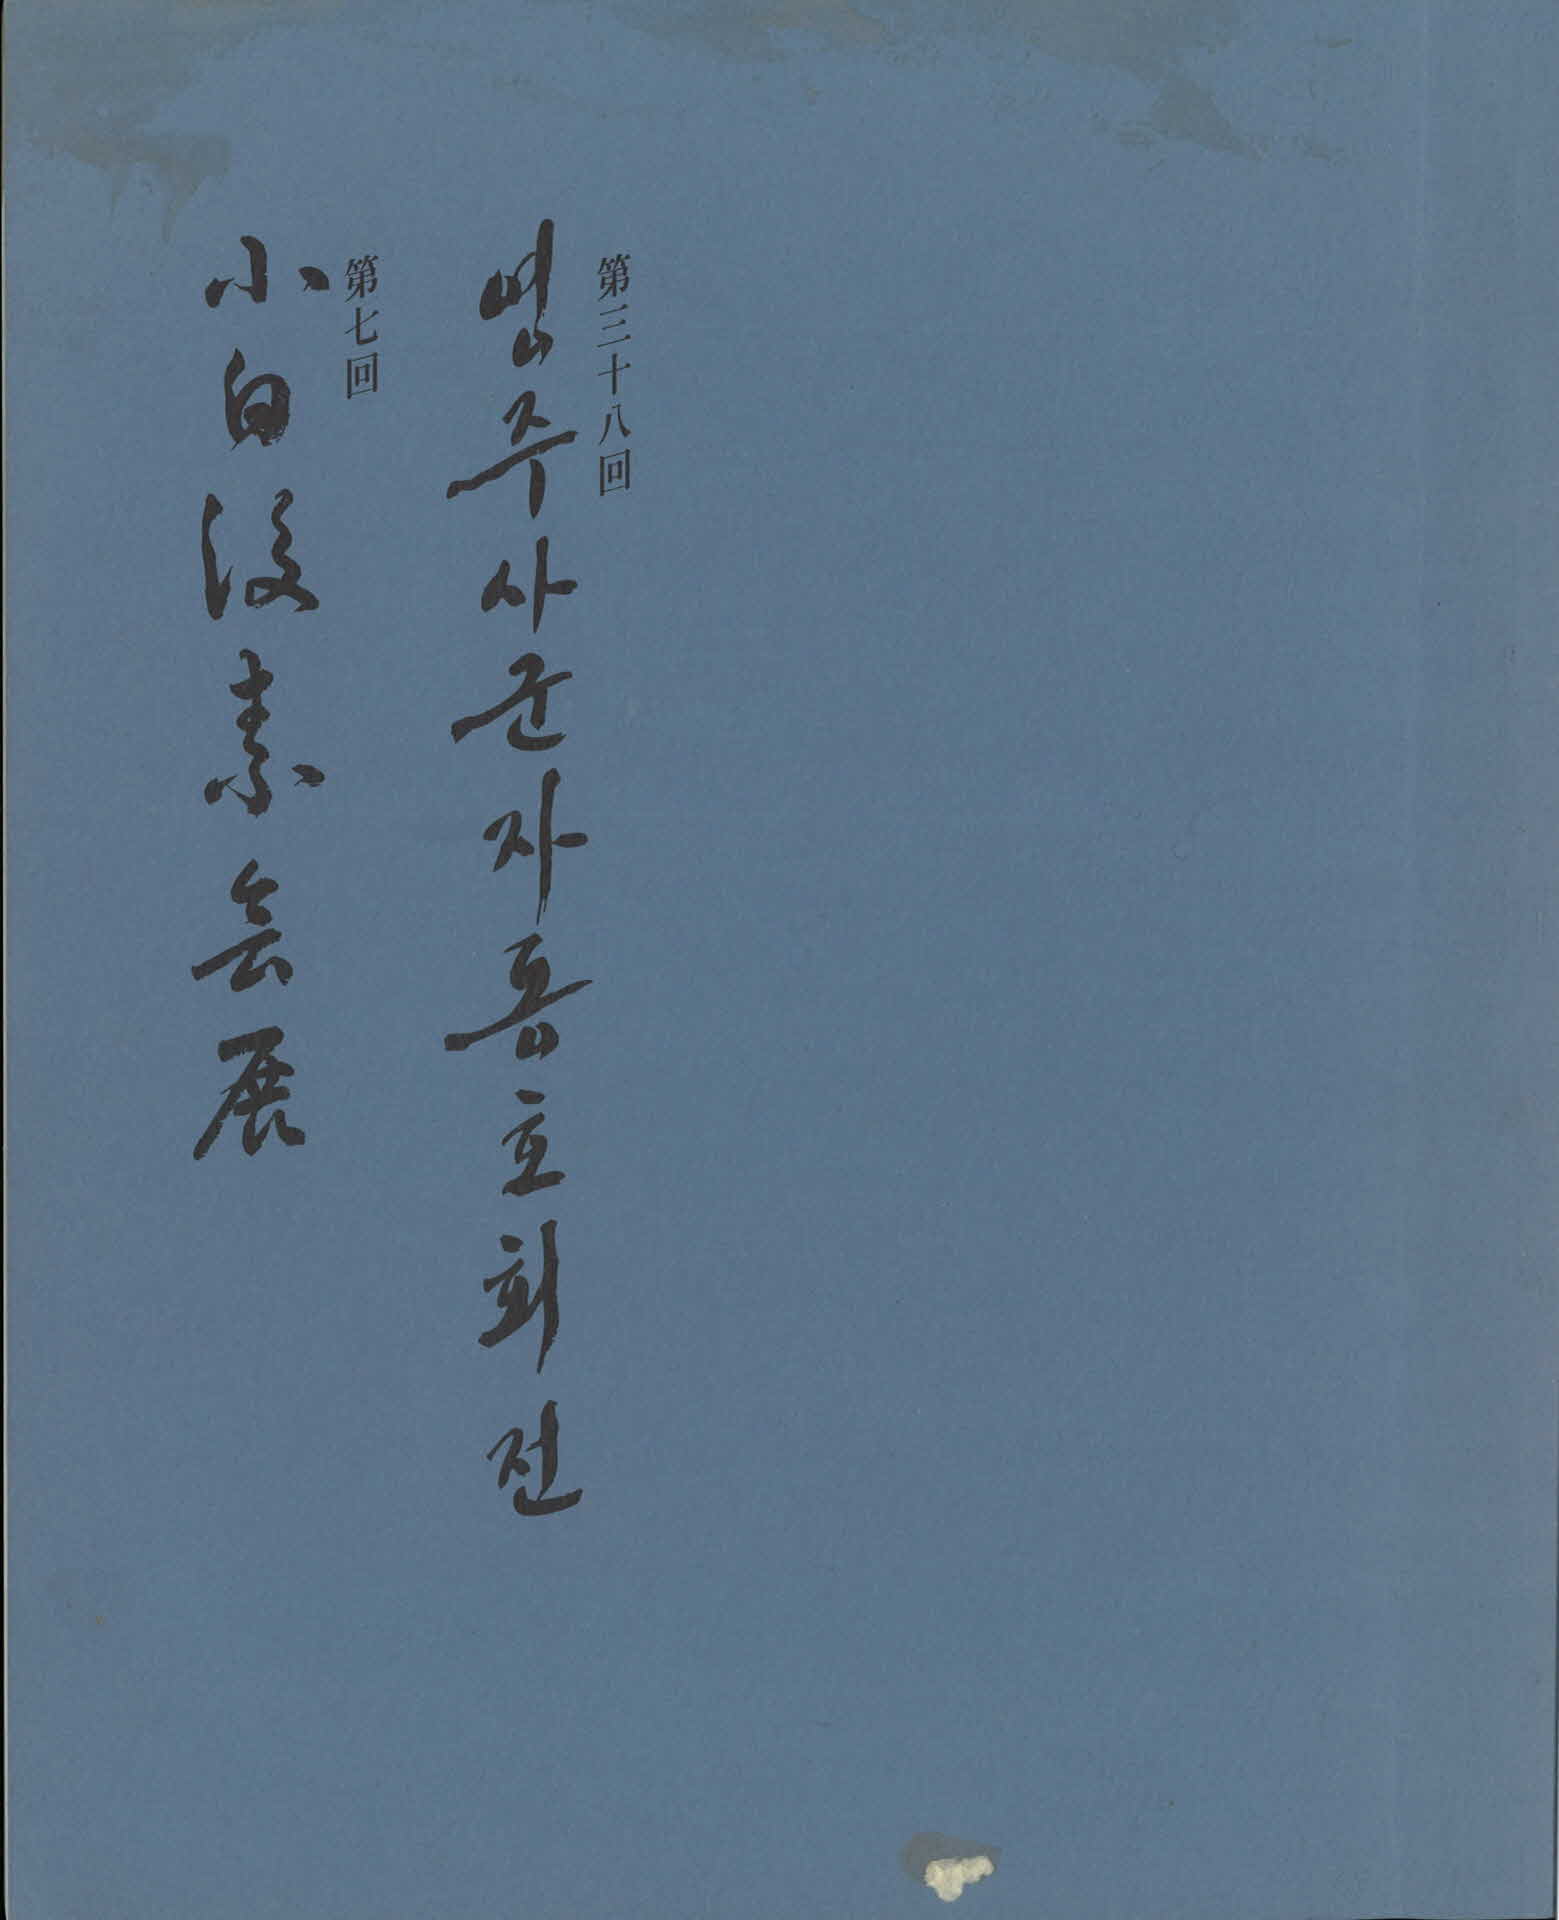 第三十八回
영주사군자동호회전
第七回
小白後素会展